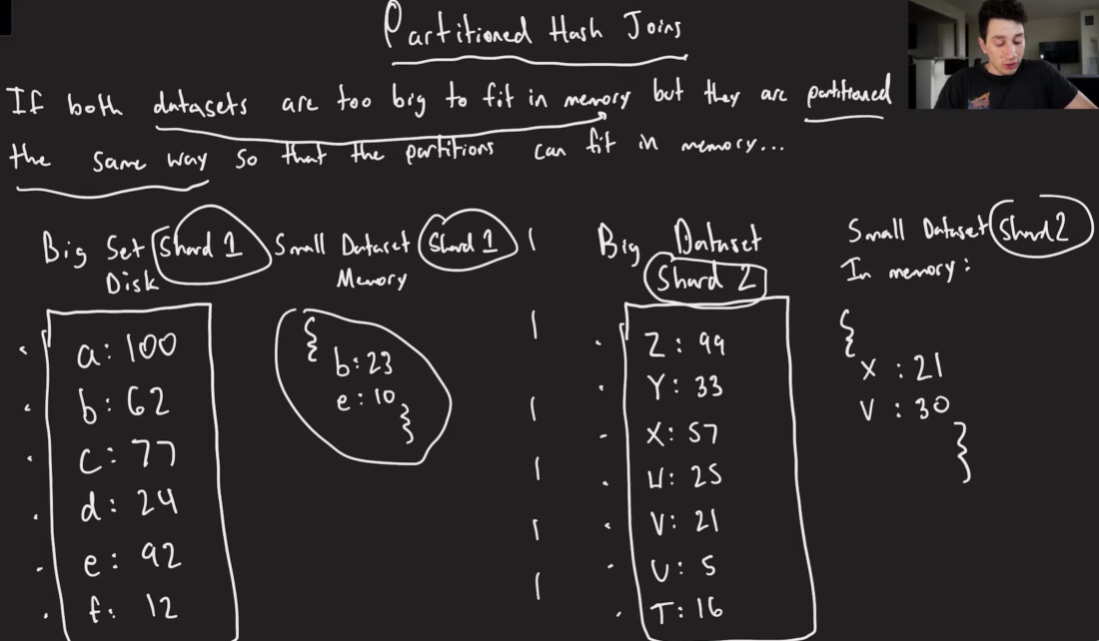 Partitioned Hash Joins
If both datasets are too big to fit in memory but they are partitioned
the same way so that the partitions can fit in memory...
Big Set Shard 1
Disk
a: 100
b: 62
c: 77
d: 24
e: 92
f: 12
Small Dataset Shard 1
Memory
{
b: 23
e: 10
}
Big Dataset
Shard 2
Z: 99
Y: 33
X: 57
W: 25
V: 21
U: 5
T: 16
Small Dataset Shard 2
In memory:
{
X : 21
V : 30
}